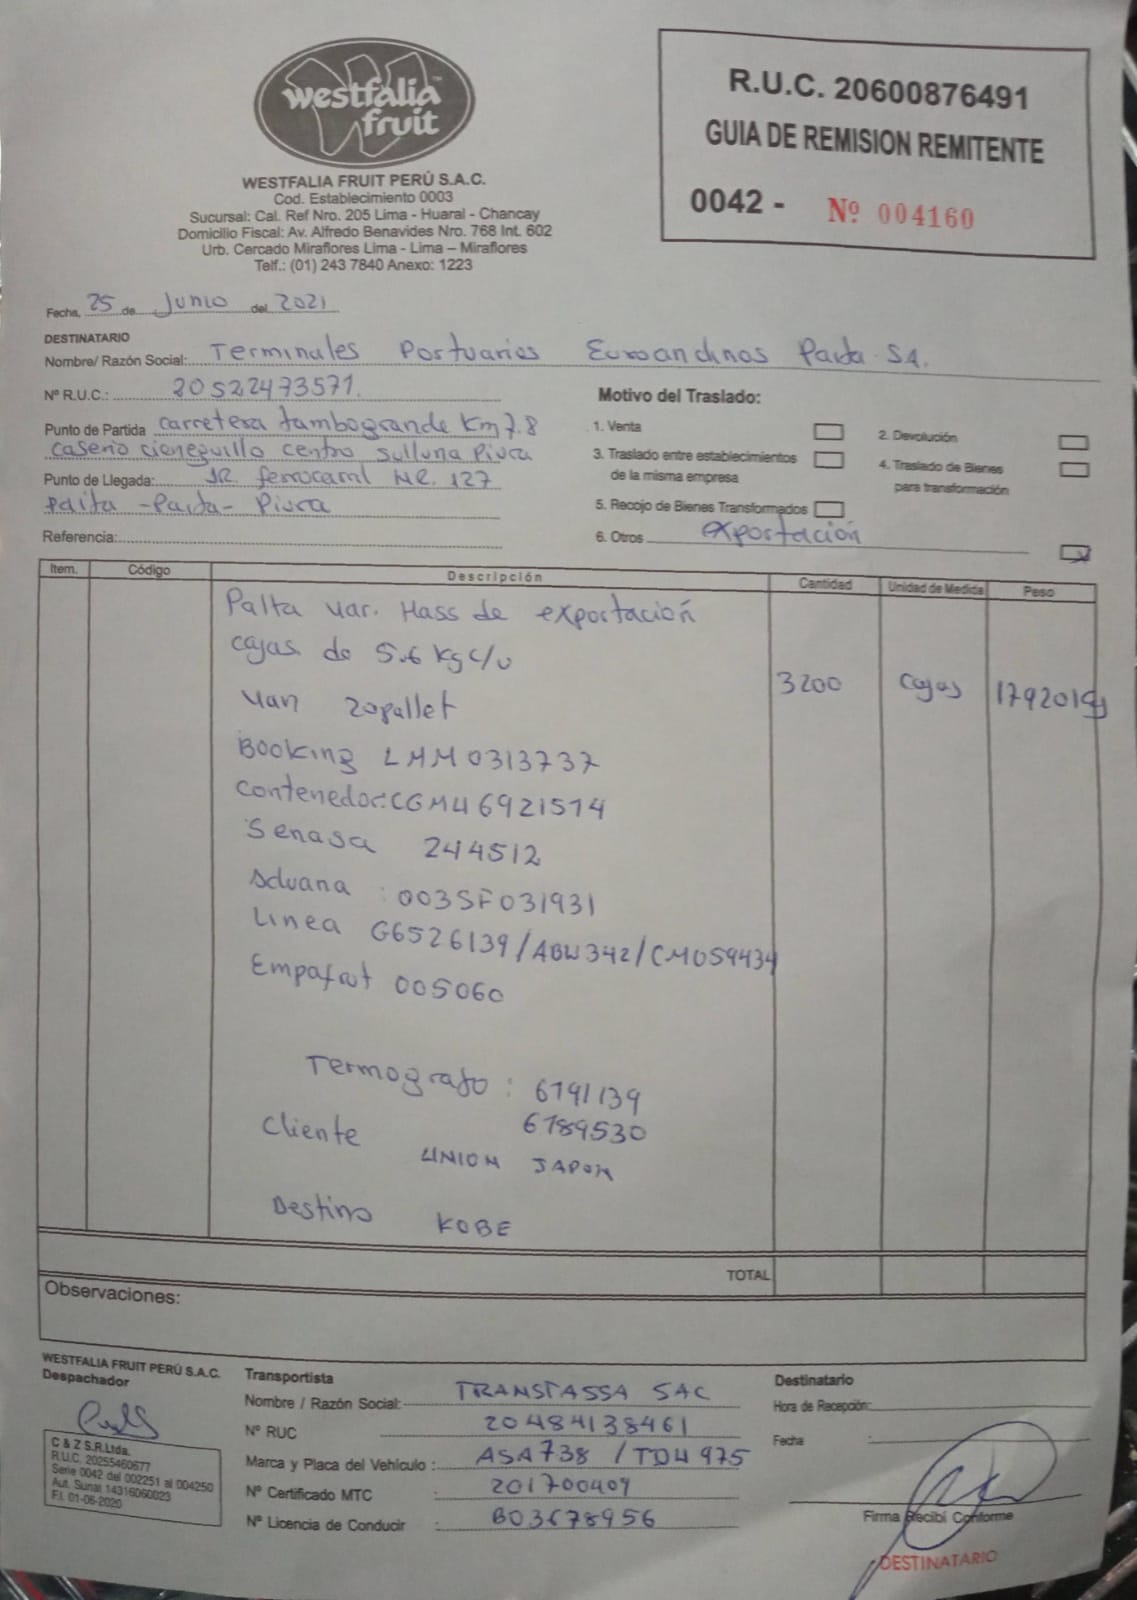 westfalia™
fruit
WESTFALIA FRUIT PERÚ S.A.C.
Cod. Establecimiento 0003
Sucursal: Cal. Ref Nro. 205 Lima - Huaral - Chancay
Domicilio Fiscal: Av. Alfredo Benavides Nro. 768 Int. 602
Urb. Cercado Miraflores Lima - Lima – Miraflores
Telf.: (01) 243 7840 Anexo: 1223
R.U.C. 20600876491
GUIA DE REMISION REMITENTE
0042 - Nº 004160
Fecha, 25 de Junio del 2021
DESTINATARIO
Nombre/ Razón Social: Terminales Portuarios Euroandinos Paita S.A.
Nº R.U.C.: 20522473571.
Punto de Partida carretera tambogrande Km 7.8
caserio cieneguillo centro sullana Piura
Punto de Llegada: JR. ferrocarril NR. 127
Paita - Paita - Piura
Referencia:
Motivo del Traslado:
1. Venta
2. Devolución
3. Traslado entre establecimientos
de la misma empresa
4. Traslado de Bienes
para transformación
5. Recojo de Bienes Transformados
6. Otros exportación
Item. Código Descripción Cantidad Unidad de Medida Peso
Palta var. Hass de exportación
cajas de 5.6 kg c/u
3200 cajas 17920kg
van 20pallet
Booking LMM0313737
Contenedor: CGMU6921574
Senasa 244512
Aduana : 003SF031931
Linea G6526139/ABW342/CM059434
Empafrut 005060
Termografo : 6791139
6789530
Cliente UNION JAPON
Destino KOBE
TOTAL
Observaciones:
WESTFALIA FRUIT PERÚ S.A.C.
Despachador
C & Z S.R.Ltda.
R.U.C. 20255460677
Serie 0042 del 002251 al 004250
Aut. Sunat 14316060023
F.I. 01-06-2020
Transportista
Nombre / Razón Social: TRANSTASSA SAC
Nº RUC 20484138461
Marca y Placa del Vehículo : ASA738 / TDU975
Nº Certificado MTC : 201700409
Nº Licencia de Conducir : B03678956
Destinatario
Hora de Recepción:
Fecha :
Firma Recibí Conforme
DESTINATARIO